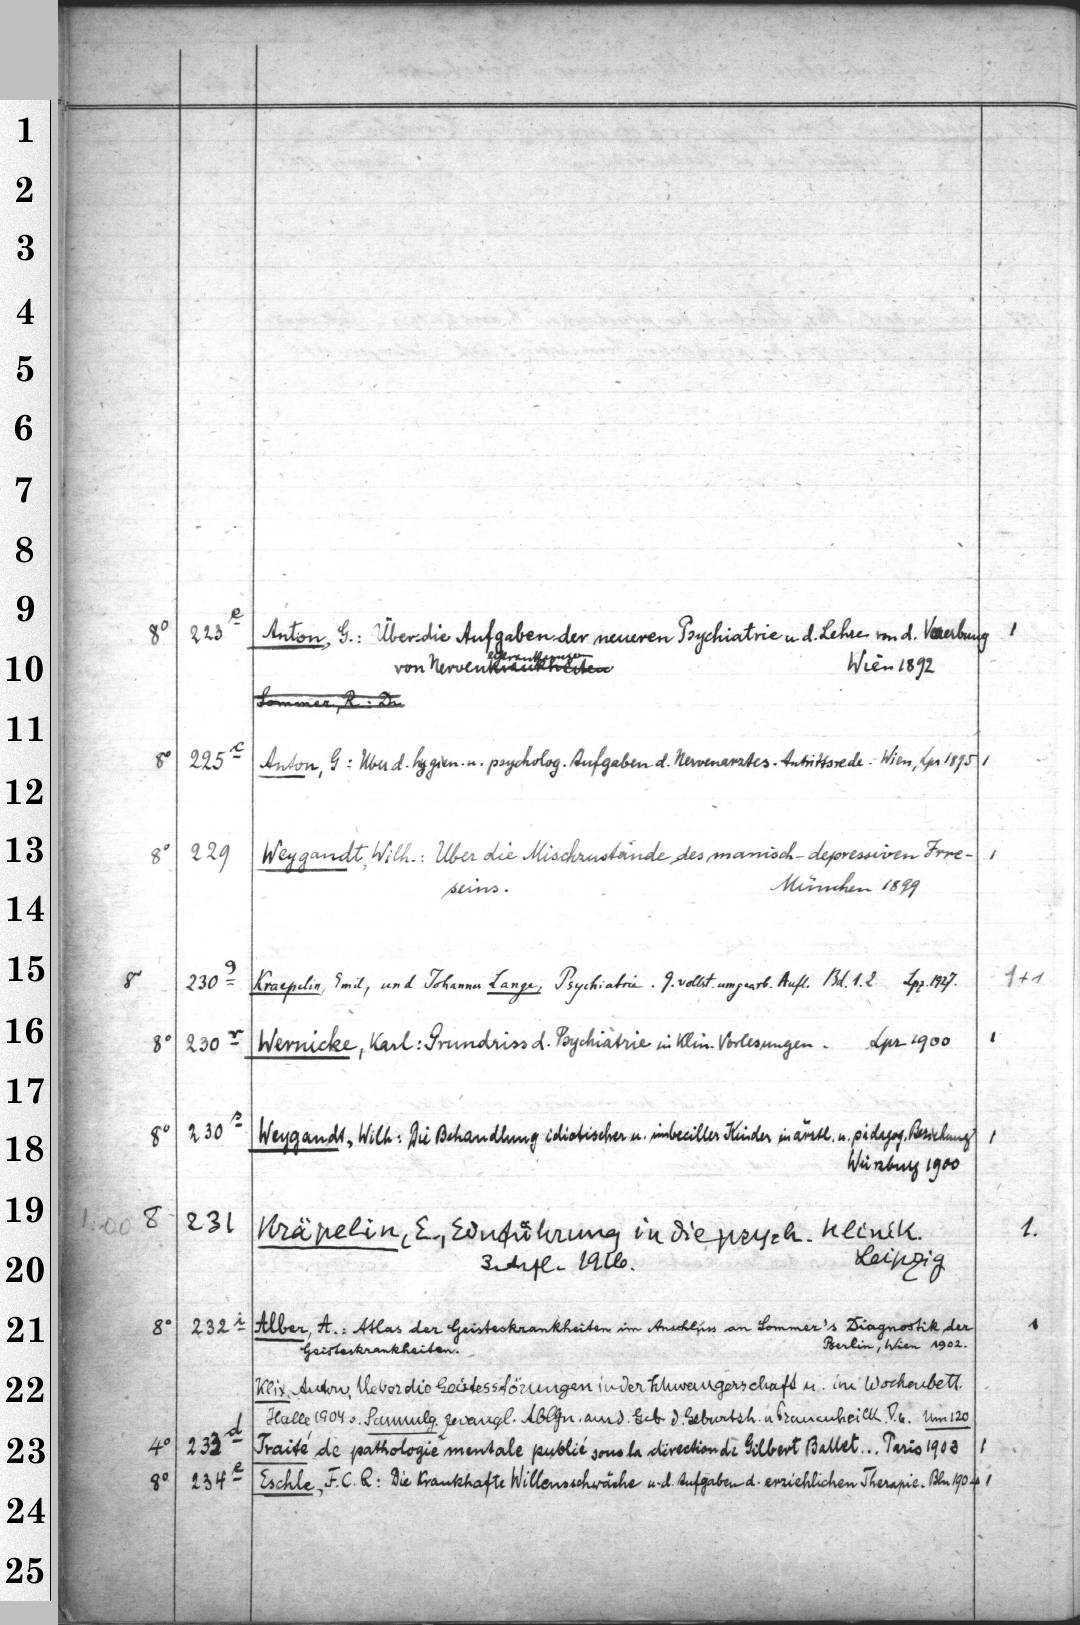 1
2
3
4
5
6
7
8
9
8° 223 e Anton, G.: Über die Aufgaben der neueren Psychiatrie u d. Lehre von d. Vererbung 1
10
von Nervenkrankheiten erkrankungen Wien 1892
Sommer, R.: Di
11
8° 225 c Anton, G: Über d. hygien. u. psycholog. Aufgaben d. Nervenarztes. Antrittsrede. Wien, Lpz 1895 1
12
13
8° 229 Weygandt, Wilh.: Über die Mischzustände des manisch-depressiven Irre- 1
seins. München 1899
14
15
8° 230 q Kraepelin, Emil, und Johannes Lange, Psychiatrie. 9. vollst. umgearb. Aufl. Bd. 1. 2 Lpz. 1927. 1+1
16
8° 230 r Wernicke, Karl: Grundriss d. Psychiatrie in klin. Vorlesungen. Lpz 1900 1
17
8° 230 s Weygandt, Wilh: Die Behandlung idiotischer u. imbeciller Kinder in ärztl. u. pädagog. Beziehung 1
18
Würzburg 1900
19
1.00 8 231 Kräpelin, E., Einführung in die psych. Klinik. 1.
20
3. Aufl. 1916. Leipzig
21
8° 232 i Alber, A.: Atlas der Geisteskrankheiten im Anschluss an Sommer's Diagnostik der 1
Geisteskrankheiten. Berlin, Wien 1902.
22
Klix, Anton, Ueber die Geistesstörungen in der Schwangerschaft u. im Wochenbett
Halle 1904 s. Sammlg. zwangl. Abhgn. aus d. Geb. d. Geburtsh. u Frauenheilk V.6. Um 120
23
4° 233 d Traité de pathologie mentale publié sous la direction de Gilbert Ballet... Paris 1903 1
8° 234 e Eschle, F. C. R: Die krankhafte Willensschwäche u. d. Aufgaben d. erziehlichen Therapie. Bln 1904 1
24
25